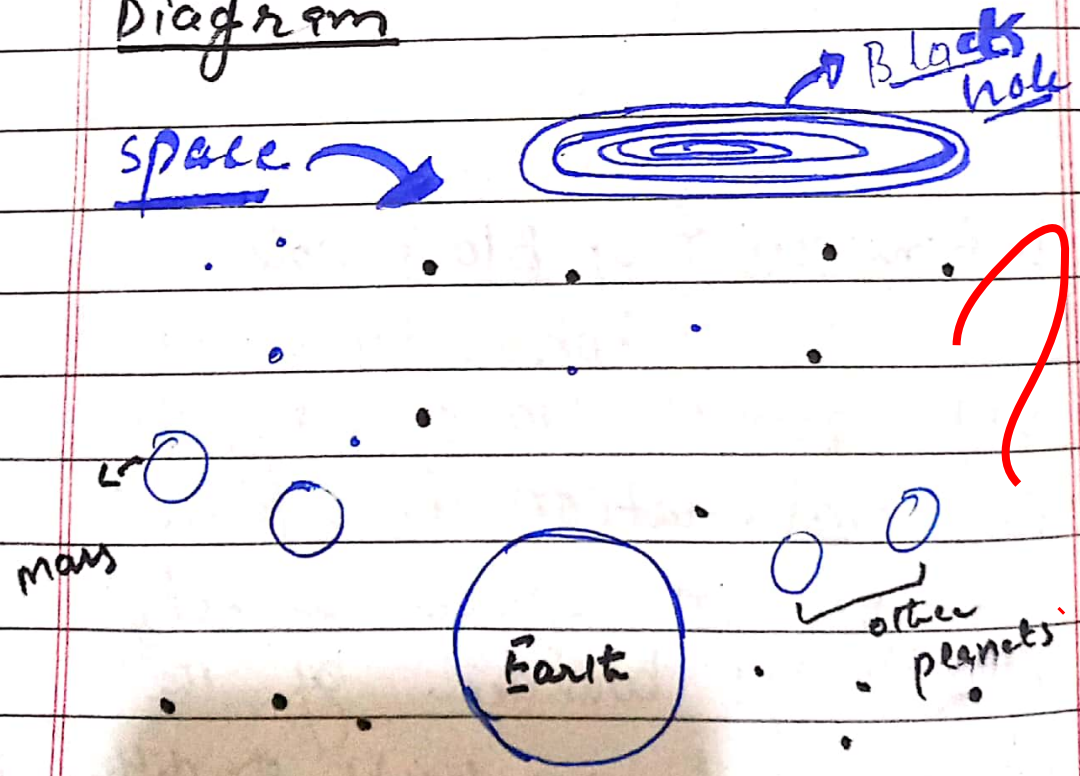 Diagram
Black
hole
space
Mars
Earth
other
planets
?